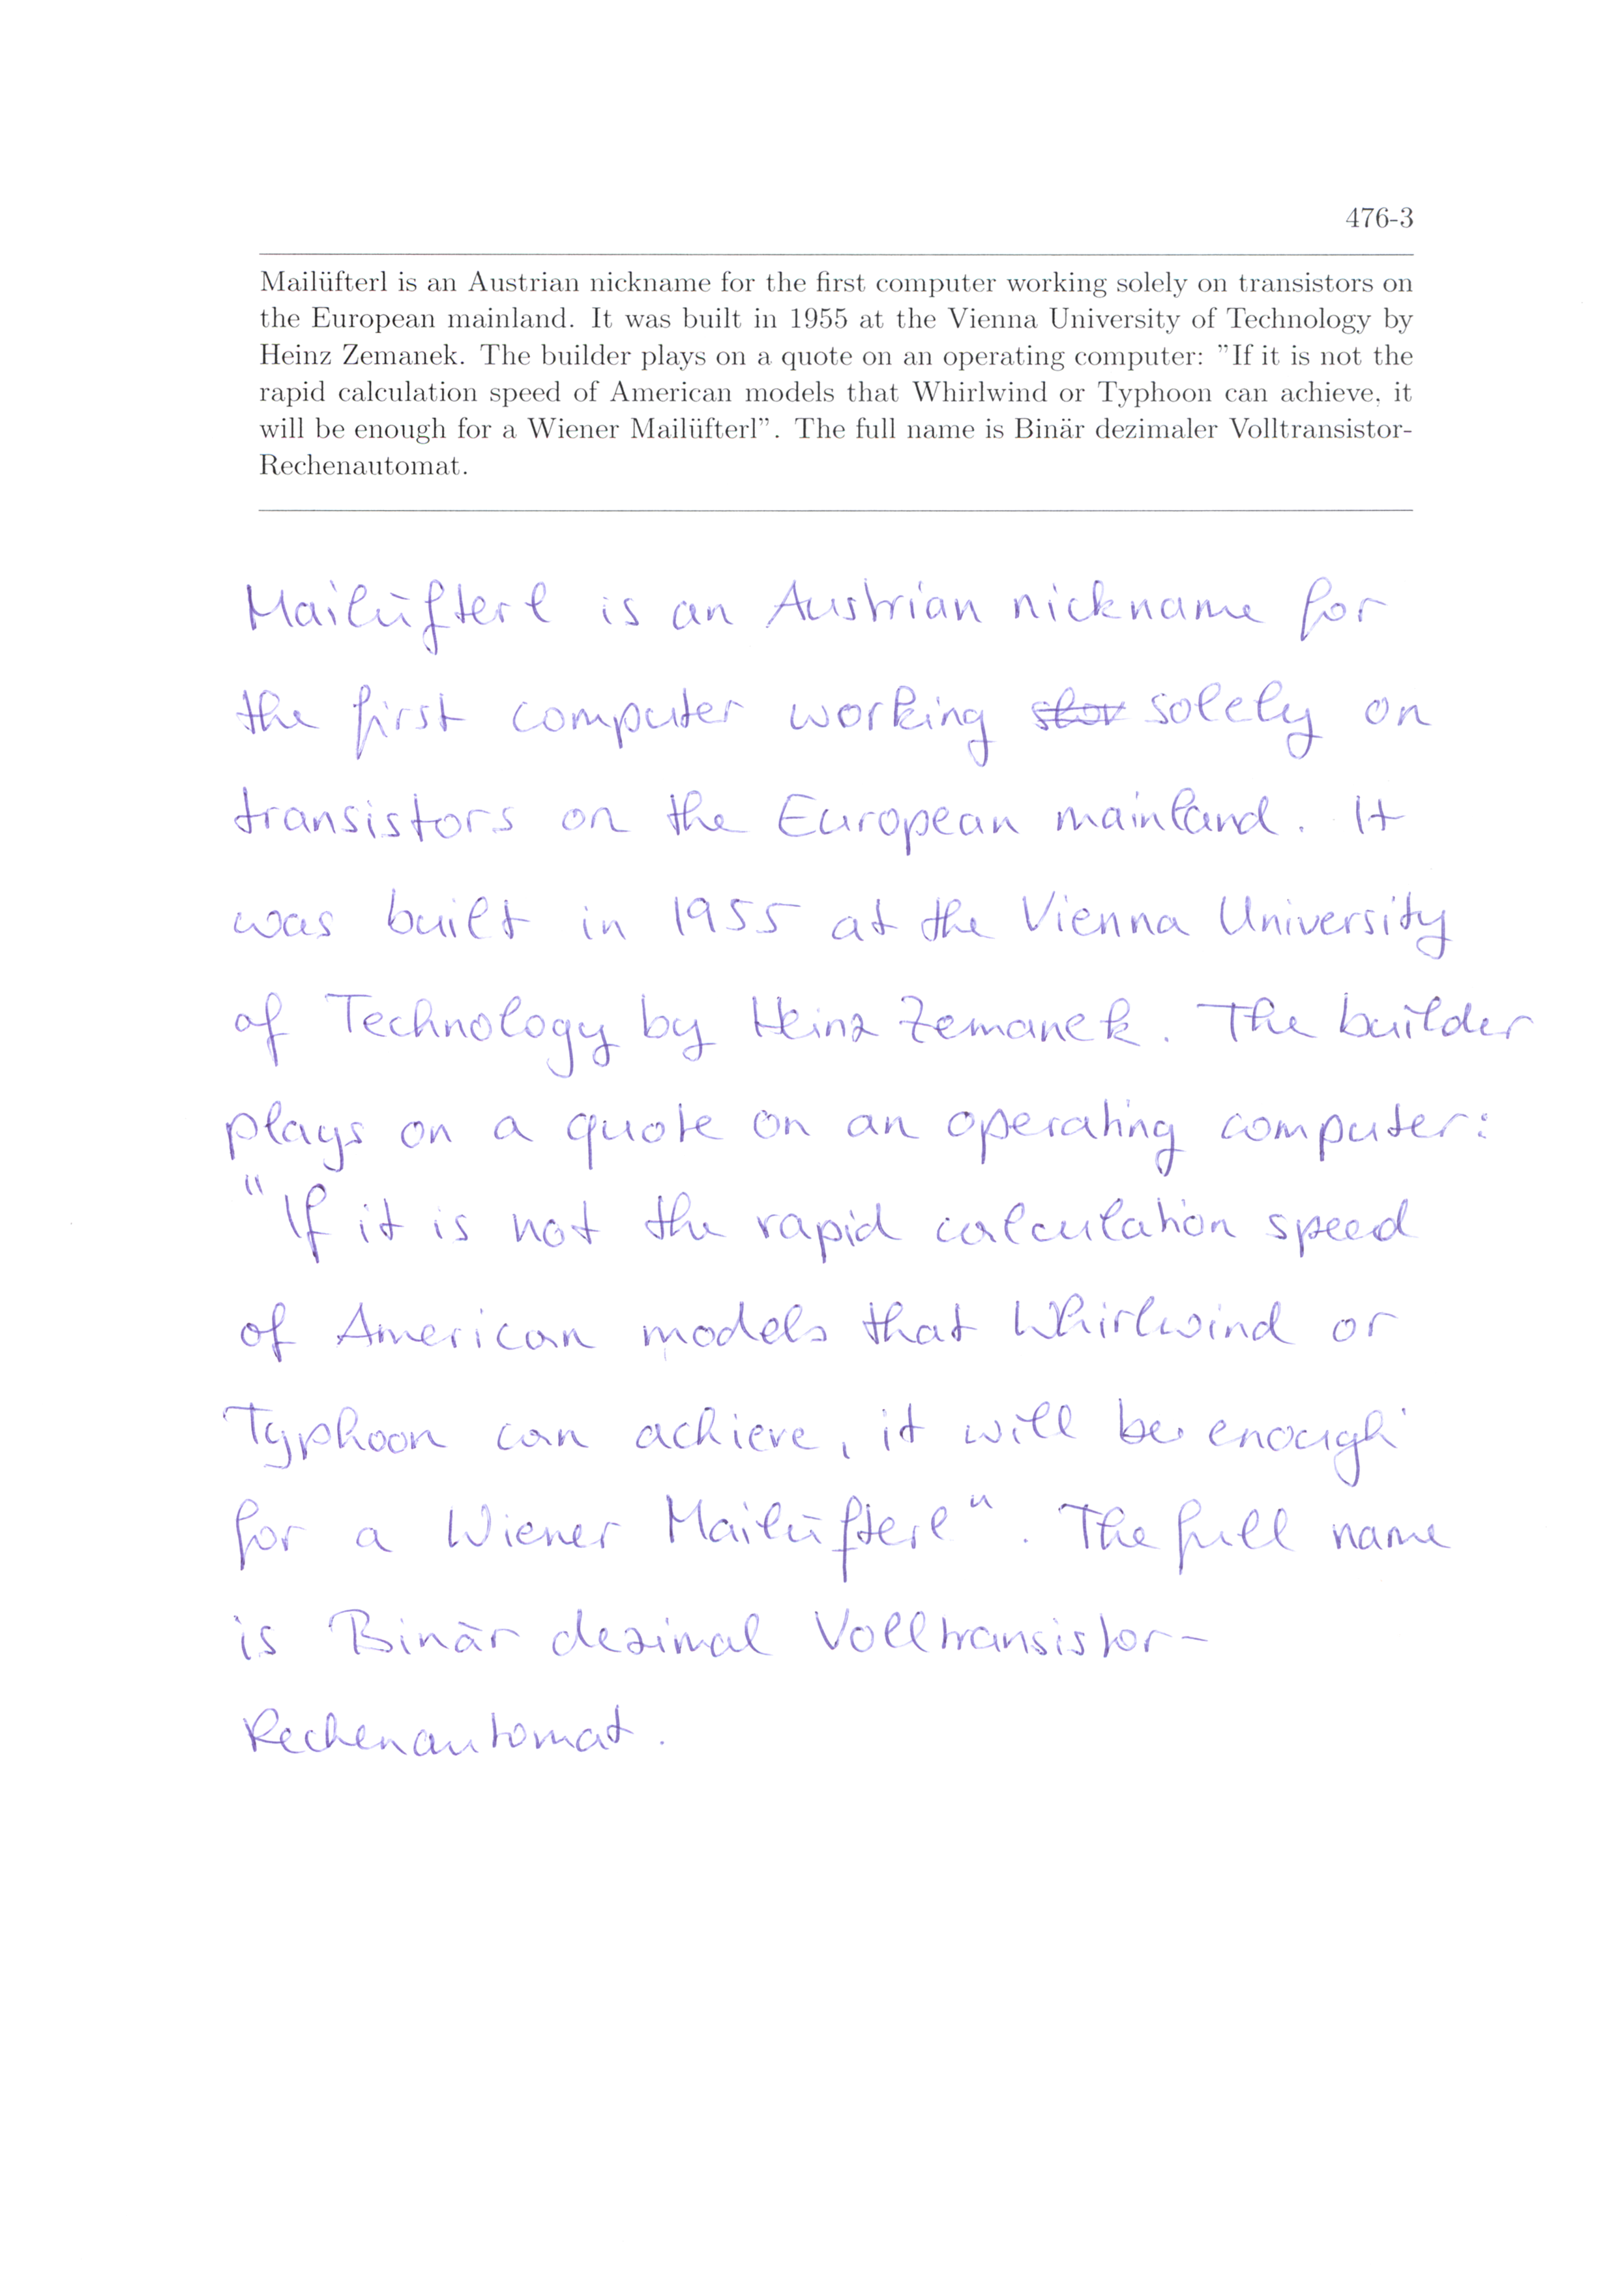 476-3
Mailüfterl is an Austrian nickname for the first computer working solely on transistors on
the European mainland. It was built in 1955 at the Vienna University of Technology by
Heinz Zemanek. The builder plays on a quote on an operating computer: "If it is not the
rapid calculation speed of American models that Whirlwind or Typhoon can achieve, it
will be enough for a Wiener Mailüfterl". The full name is Binär dezimaler Volltransistor-
Rechenautomat.
Mailüfterl is an Austrian nickname for
the first computer working solely on
transistors on the European mainland. It
was built in 1955 at the Vienna University
of Technology by Heinz Zemanek. The builder
plays on a quote on an operating computer:
"If it is not the rapid calculation speed
of American models that Whirlwind or
Typhoon can achieve, it will be enough
for a Wiener Mailüfterl". The full name
is Binär dezimal Volltransistor-
Rechenautomat.